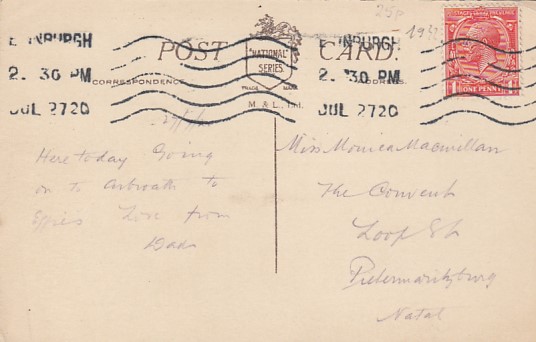 25p
E INBURGH
2. 30 PM
JUL 27 20
POST CARD.
"NATIONAL"
SERIES
CORRESPONDENCE
TRADE MARK
M. & L., Ld.
ADDRESS.
E INBURGH
2. 30 PM
JUL 27 20
POSTAGE REVENUE
ONE PENNY
Here today Going
on to Arbroath to
Eppies Love from
Dad
Miss Monica Macmillan
The Convent
Loop St
Pietermaritzburg
Natal